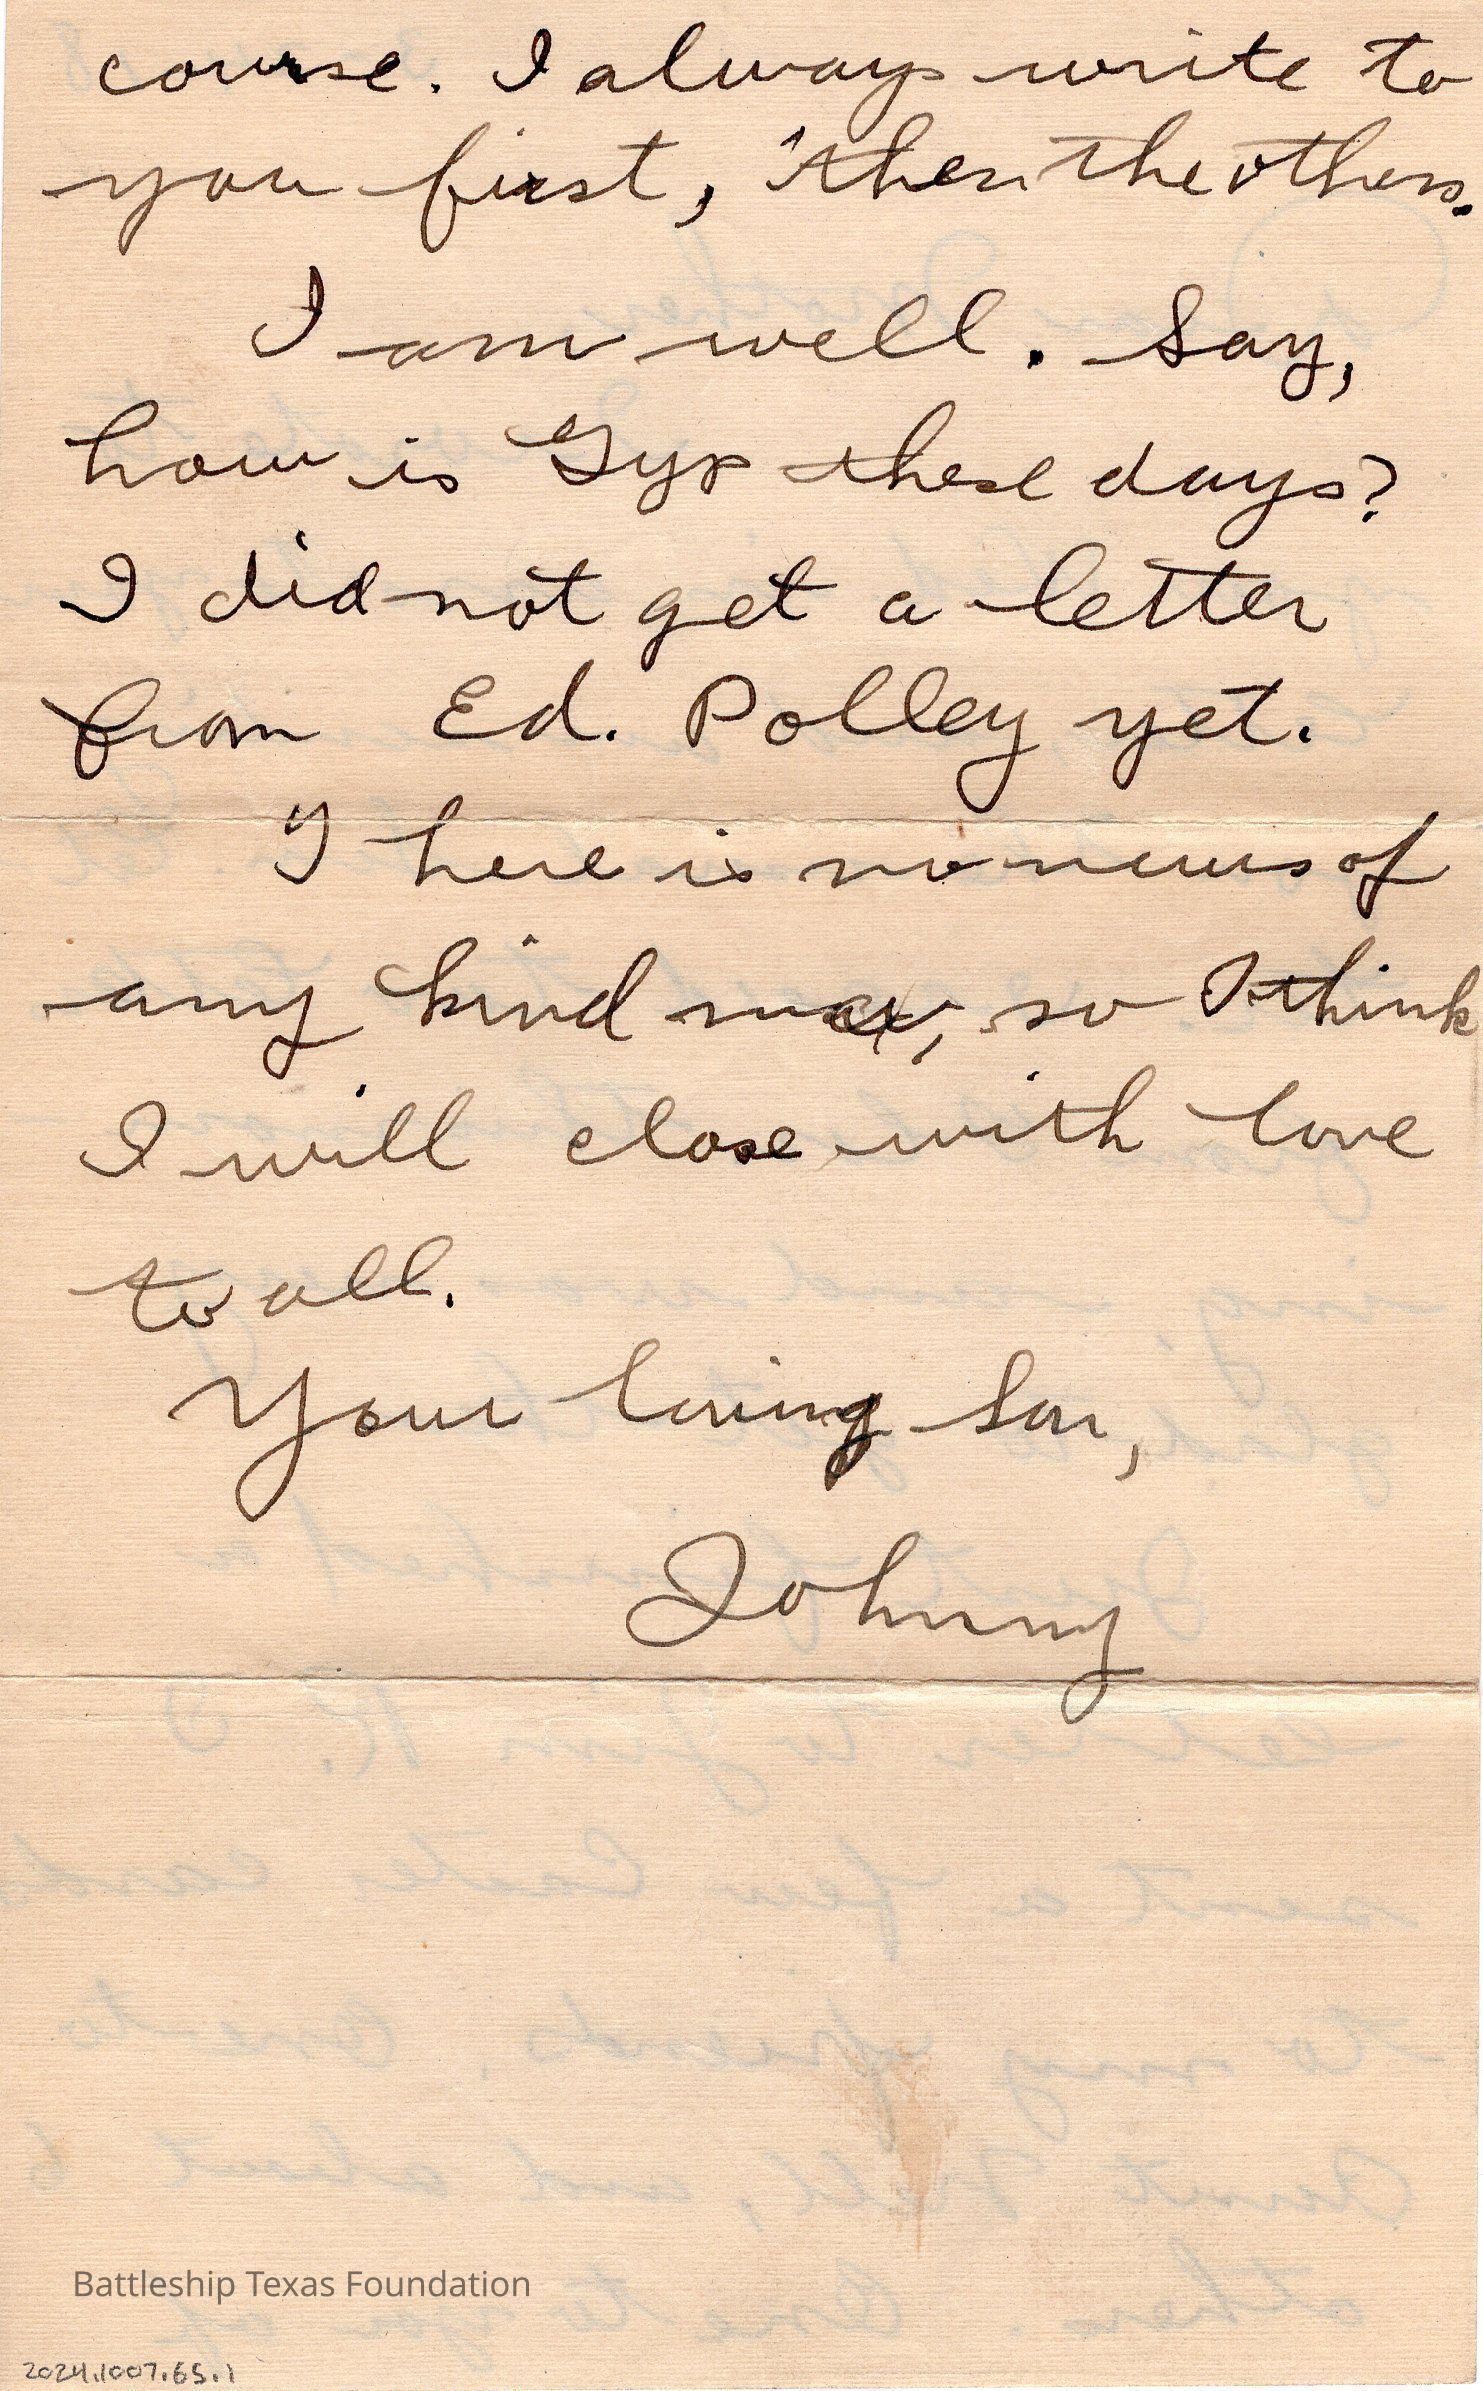 course. I always write to
you first, then the others.
I am well. Say,
how is Gyp these days?
I did not get a letter
from Ed. Polley yet.
There is no news of
any kind now, so I think
I will close with love
to all.
Your loving Son,
Johnny
Battleship Texas Foundation
2024.1007.65.1